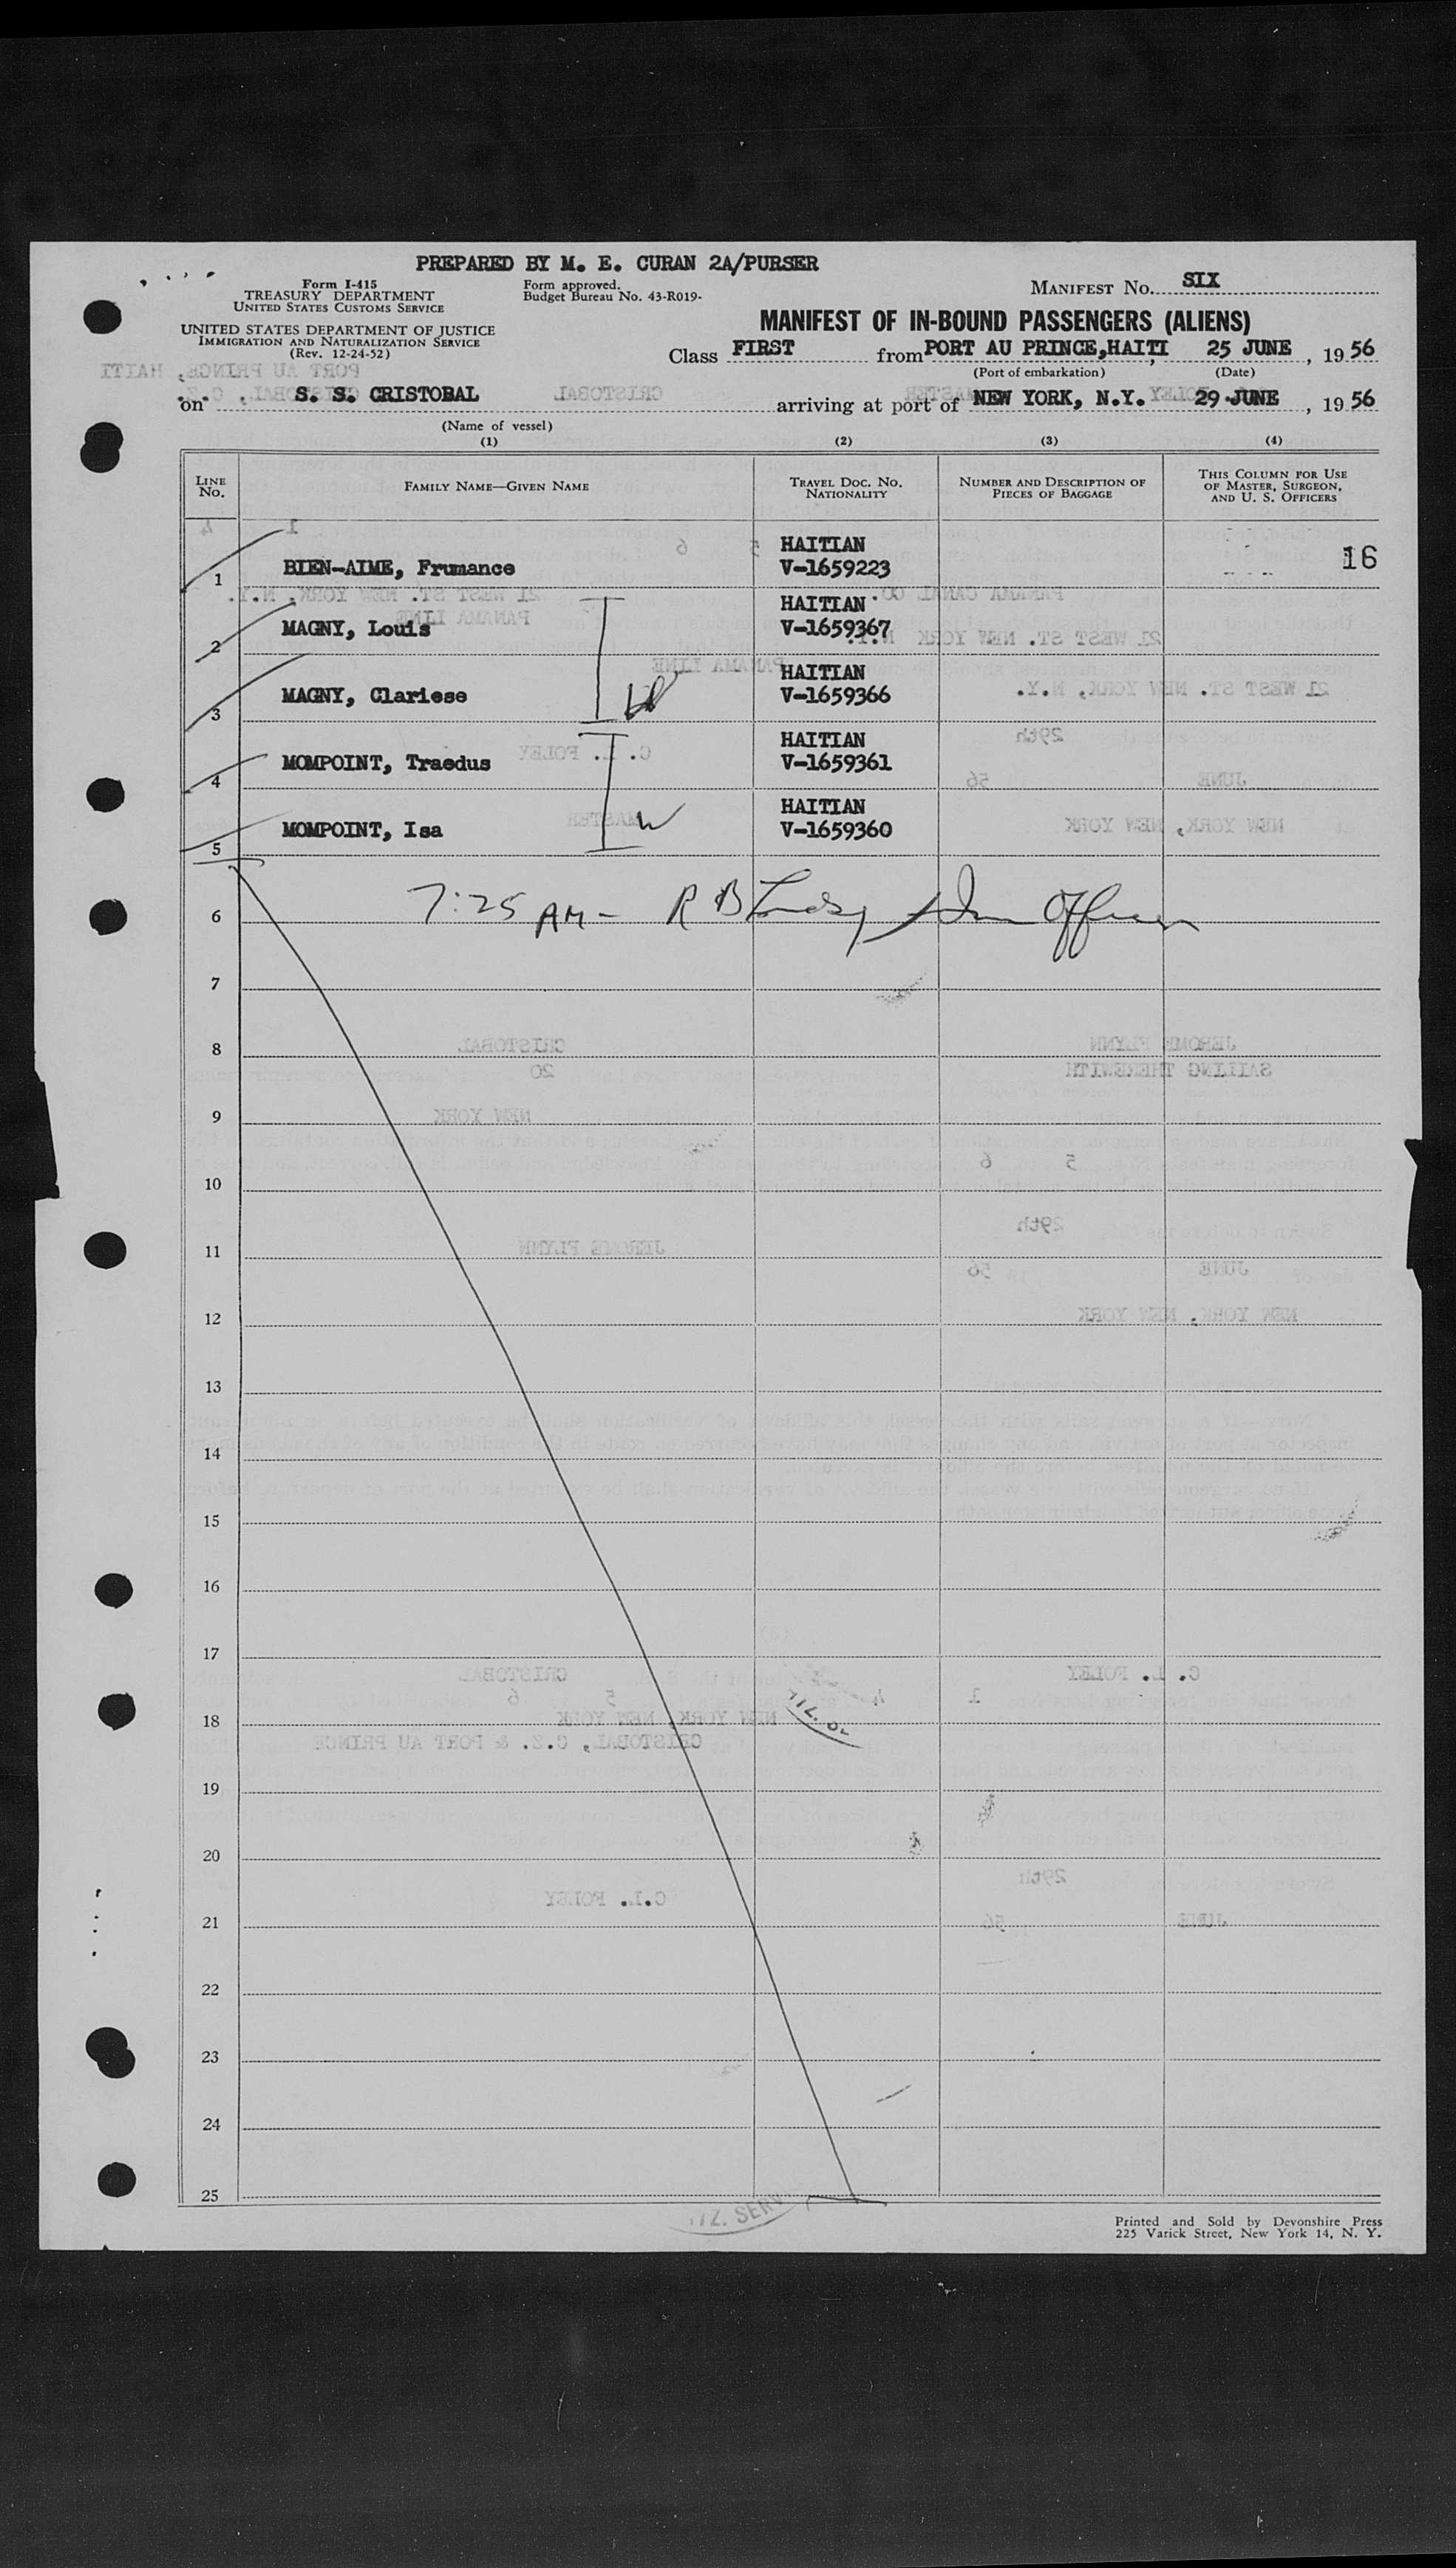 PREPARED BY M. E. CURAN 2A/PURSER
Form I-415
TREASURY DEPARTMENT
UNITED STATES CUSTOMS SERVICE
Form approved.
Budget Bureau No. 43-R019-
MANIFEST No. SIX
UNITED STATES DEPARTMENT OF JUSTICE
IMMIGRATION AND NATURALIZATION SERVICE
(Rev. 12-24-52)
MANIFEST OF IN-BOUND PASSENGERS (ALIENS)
Class FIRST from PORT AU PRINCE, HAITI, 25 JUNE, 19 56
(Port of embarkation) (Date)
on S. S. CRISTOBAL arriving at port of NEW YORK, N.Y. 29 JUNE, 19 56
(Name of vessel)
(1) (2) (3) (4)
LINE No. FAMILY NAME—GIVEN NAME TRAVEL DOC. No. NATIONALITY NUMBER AND DESCRIPTION OF PIECES OF BAGGAGE THIS COLUMN FOR USE OF MASTER, SURGEON, AND U. S. OFFICERS
HAITIAN
1 BIEN-AIME, Frumance V-1659223 16
HAITIAN
2 MAGNY, Louis V-1659367
HAITIAN
3 MAGNY, Clariese V-1659366
HAITIAN
4 MOMPOINT, Traedus V-1659361
HAITIAN
5 MOMPOINT, Isa V-1659360
W
6 7:25 AM - R B Officer
7
8
9
10
11
12
13
14
15
16
17
18
19
20
21
22
23
24
25
IZ. SERV
Printed and Sold by Devonshire Press
225 Varick Street, New York 14, N. Y.